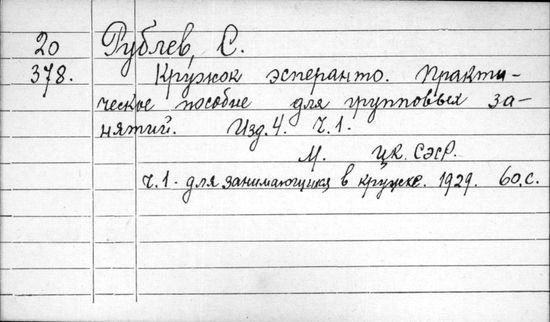 20 Рублев, С.
378. Кружок эсперанто. Практи-
ческое пособие для групповых за-
нятий. Изд. 4. Ч. 1.
М. ЦК. СЭСР.
Ч. 1. для занимающихся в кружке. 1929. 60.с.